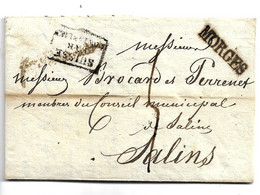 messieurs
MORGES
SUISSE
PAR
messieurs Brocard et Perrenet
membres du Conseil municipal
de Salins
Salins